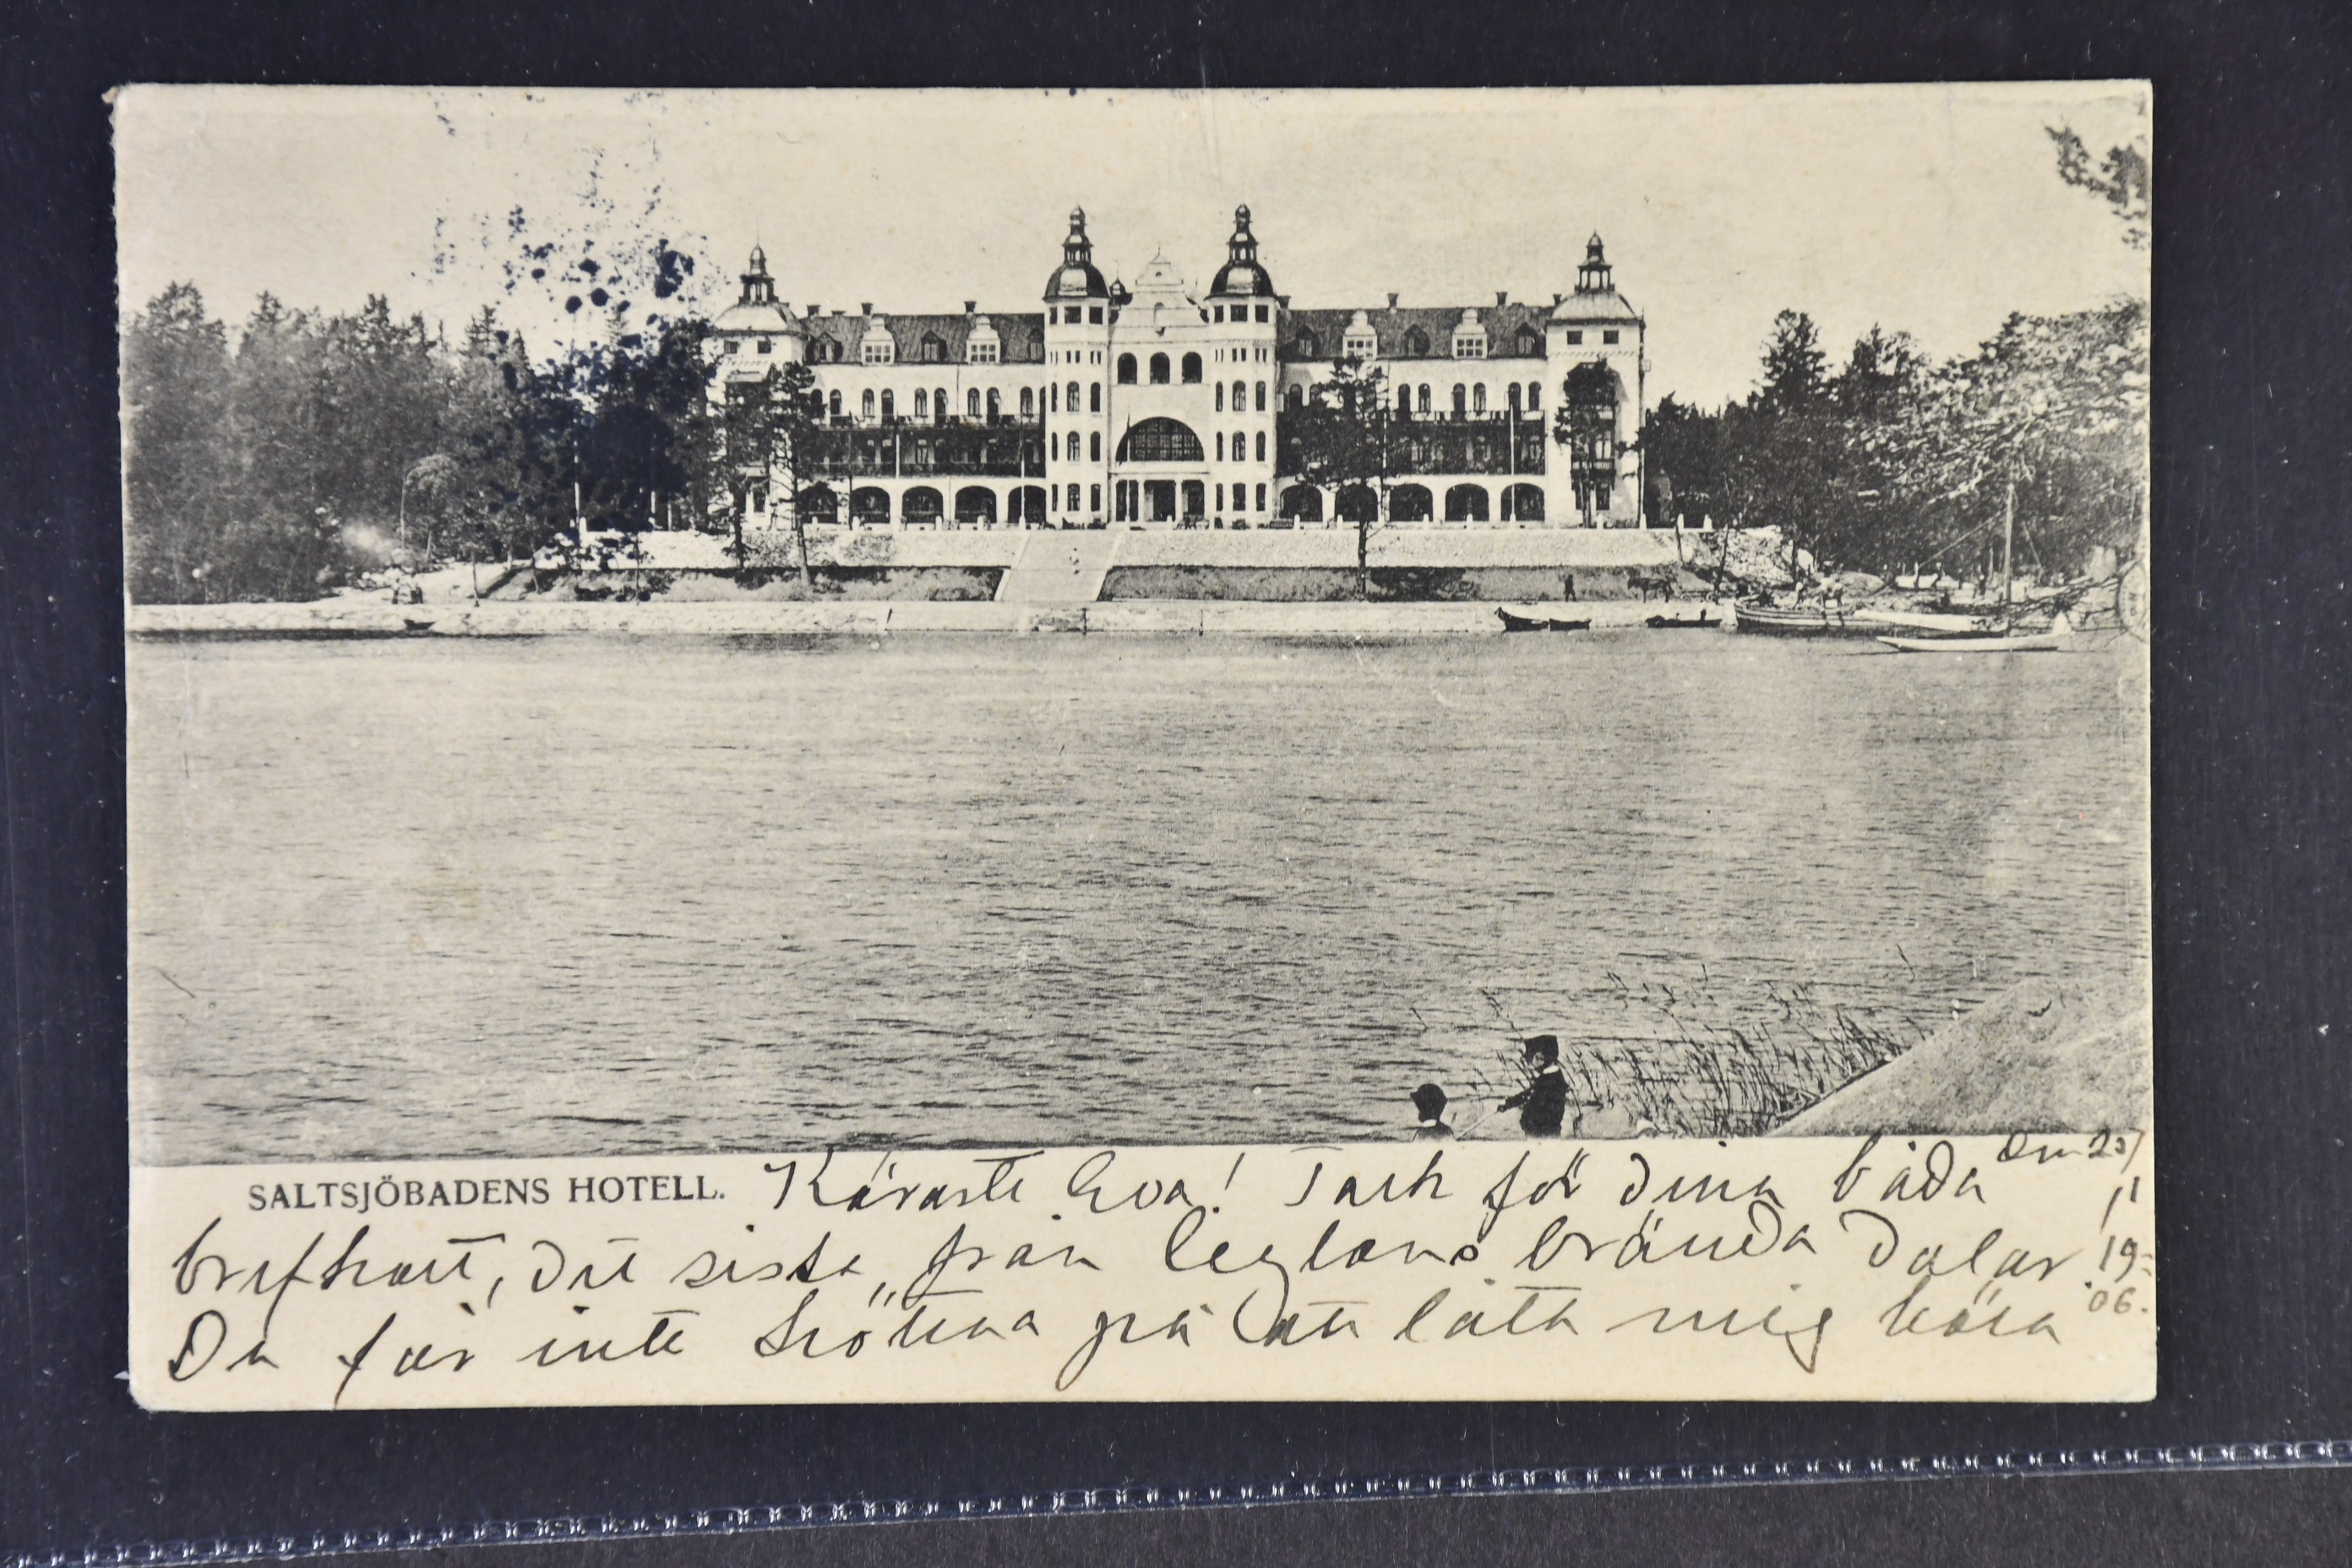 SALTSJÖBADENS HOTELL. Käraste Eva! Tack för dina båda
brefkort, det sista „från Ceylons brända dalar.
Du får inte tröttna på att låta mig höra
Den 25/
11
19-
06.